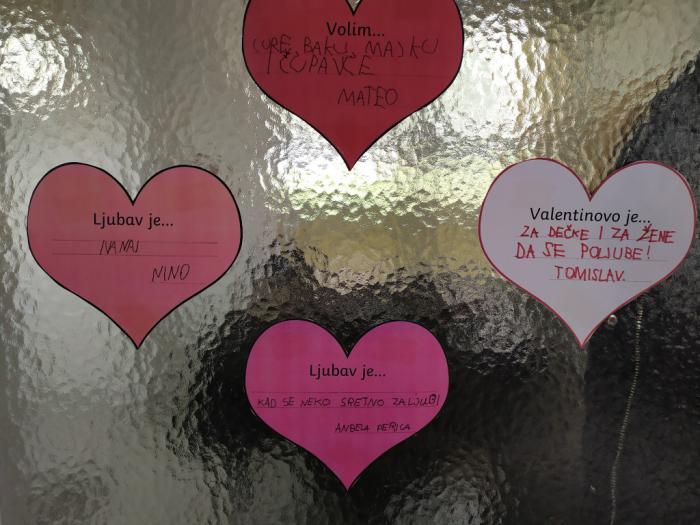 Volim...
CURE, BAKU, MAJKU
I ČUPAVCE
MATEO
Ljubav je...
NINO
Valentinovo je...
ZA DEČKE I ZA ŽENE
DA SE POLJUBE!
TOMISLAV.
Ljubav je...
KAD SE NEKO SRETNO ZALJUBI
ANĐELA PERICA